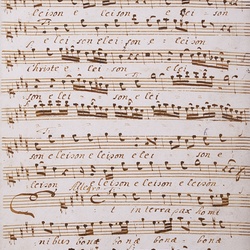 eison e leison e leison
e lei son elei son e leison
Christe e lei son
son e lei
son eleison eleison e lei son e
leison eleison e leison e leison
Allegro
Et in terra pax homi
nibus bonae bonae bonae